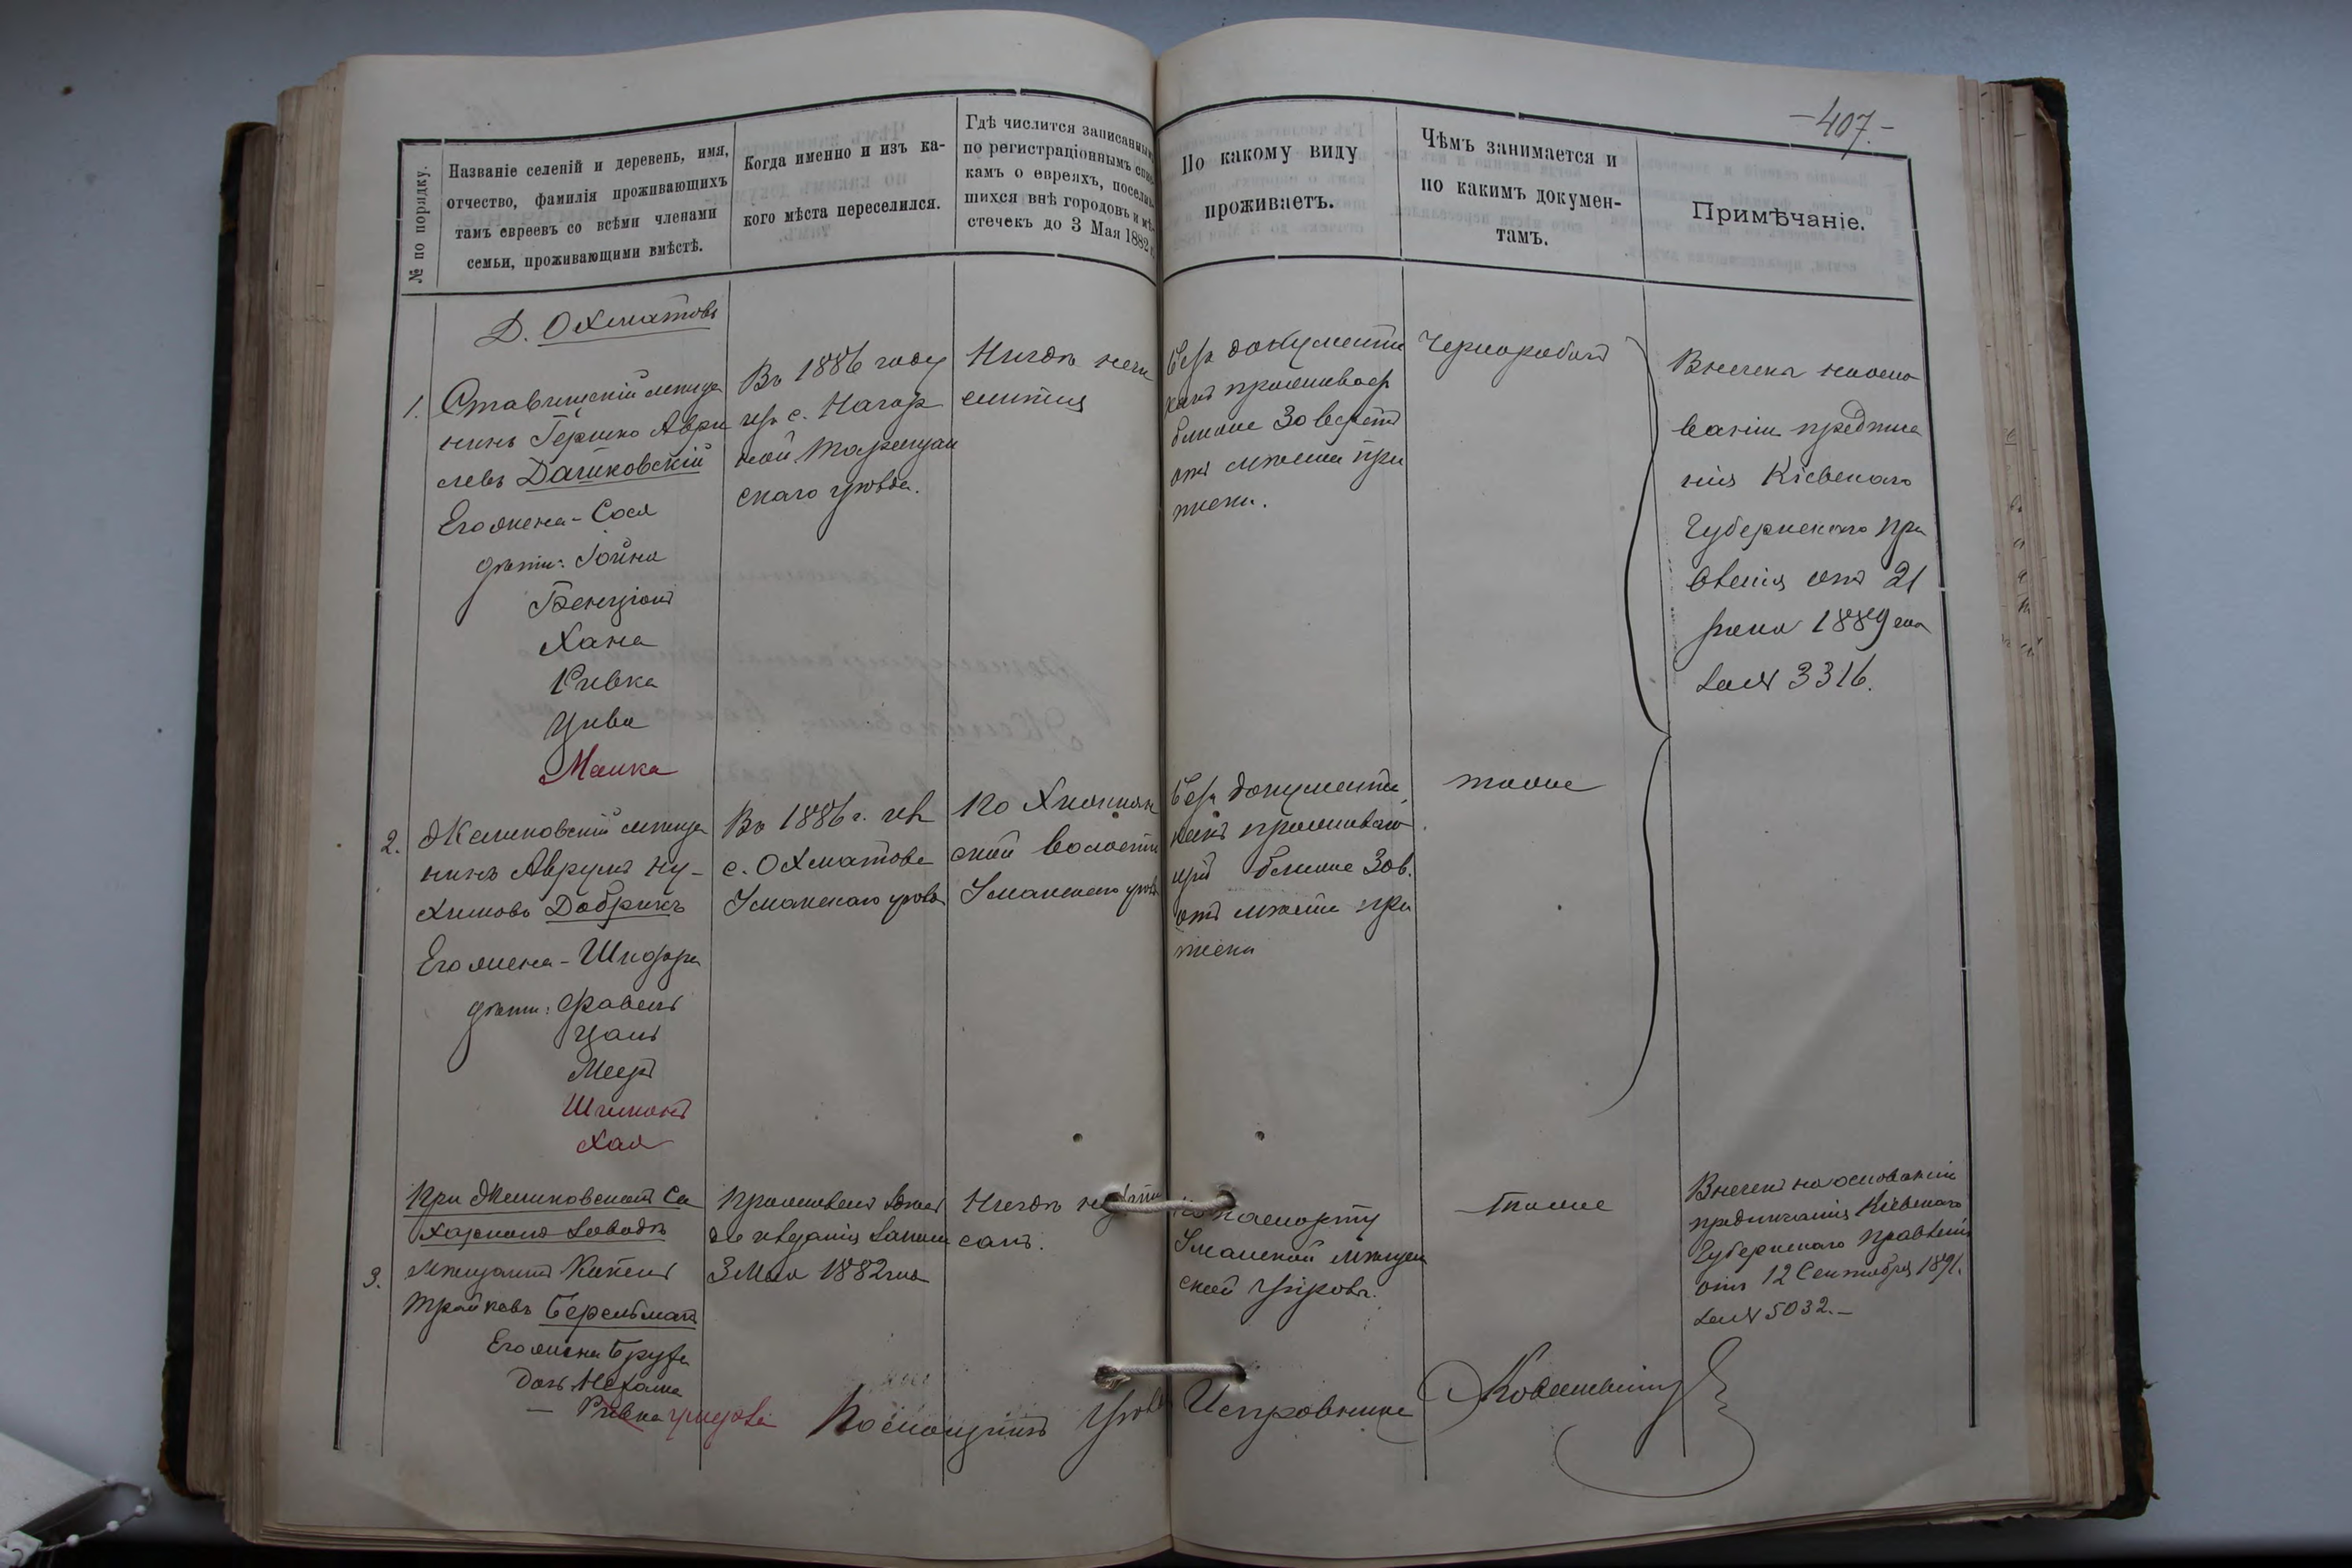 -407.-
№ по порядку.
Названіе селеній и деревень, имя,
отчество, фамилія проживающихъ
тамъ евреевъ со всѣми членами
семьи, проживающими вмѣстѣ.
Когда именно и изъ ка-
кого мѣста переселился.
Гдѣ числится записаннымъ
по регистраціоннымъ спис-
камъ о евреяхъ, поселив-
шихся внѣ городовъ и мѣ-
стечекъ до 3 Мая 1882 г.
По какому виду
проживаетъ.
Чѣмъ занимается и
по какимъ докумен-
тамъ.
Примѣчаніе.
Д. Охматовъ
1. Ставищскій мѣща
нинъ Гершко Аври
левъ Дашковскій
Его жена - Сося
дѣти: Іойна
Бенціонъ
Хана
Ривка
Цива
Манка
Въ 1886 году
изъ с.
ной Таращан
скаго уѣзда.
Нигдѣ нечи
слится
безъ документа
какъ проживаю
ближе 30 верстъ
отъ мѣста при
писки.
Чернорабоч
Внесены наосно
ваніи предписа
нія Кіевскаго
Губернскаго Пра
вленія отъ 21
1889 года
за № 3316.
2. Жашковскій мѣща
нинъ Аврумъ Ну-
химовъ Добрикъ
Его жена - Шифра
дѣти:
Цаль
Мееръ
Шимонъ
Хая
Въ 1886 г. изъ
с. Охматова
Уманскаго уѣзда
По
ской волости
Уманскаго уѣзда
безъ документа,
какъ проживаю
щій ближе 30 в.
отъ мѣста при
писки
тоже
При Жашковскомъ Са
харномъ заводѣ
3. мѣщанинъ
Берельманъ
Его жена Бруха
дочь Нехама
— Ривка
Проживалъ здѣсь
до изданія закона
3 Мая 1882 года
Нигдѣ не запи
санъ.
по паспорту
Уманской мѣщан
ской управы.
тоже
Внесенъ на основаніи
предписанія Кіевскаго
Губернскаго Правленія
отъ 12 Сентября 1891.
за № 5032.—
Помощникъ Уѣзд Исправника